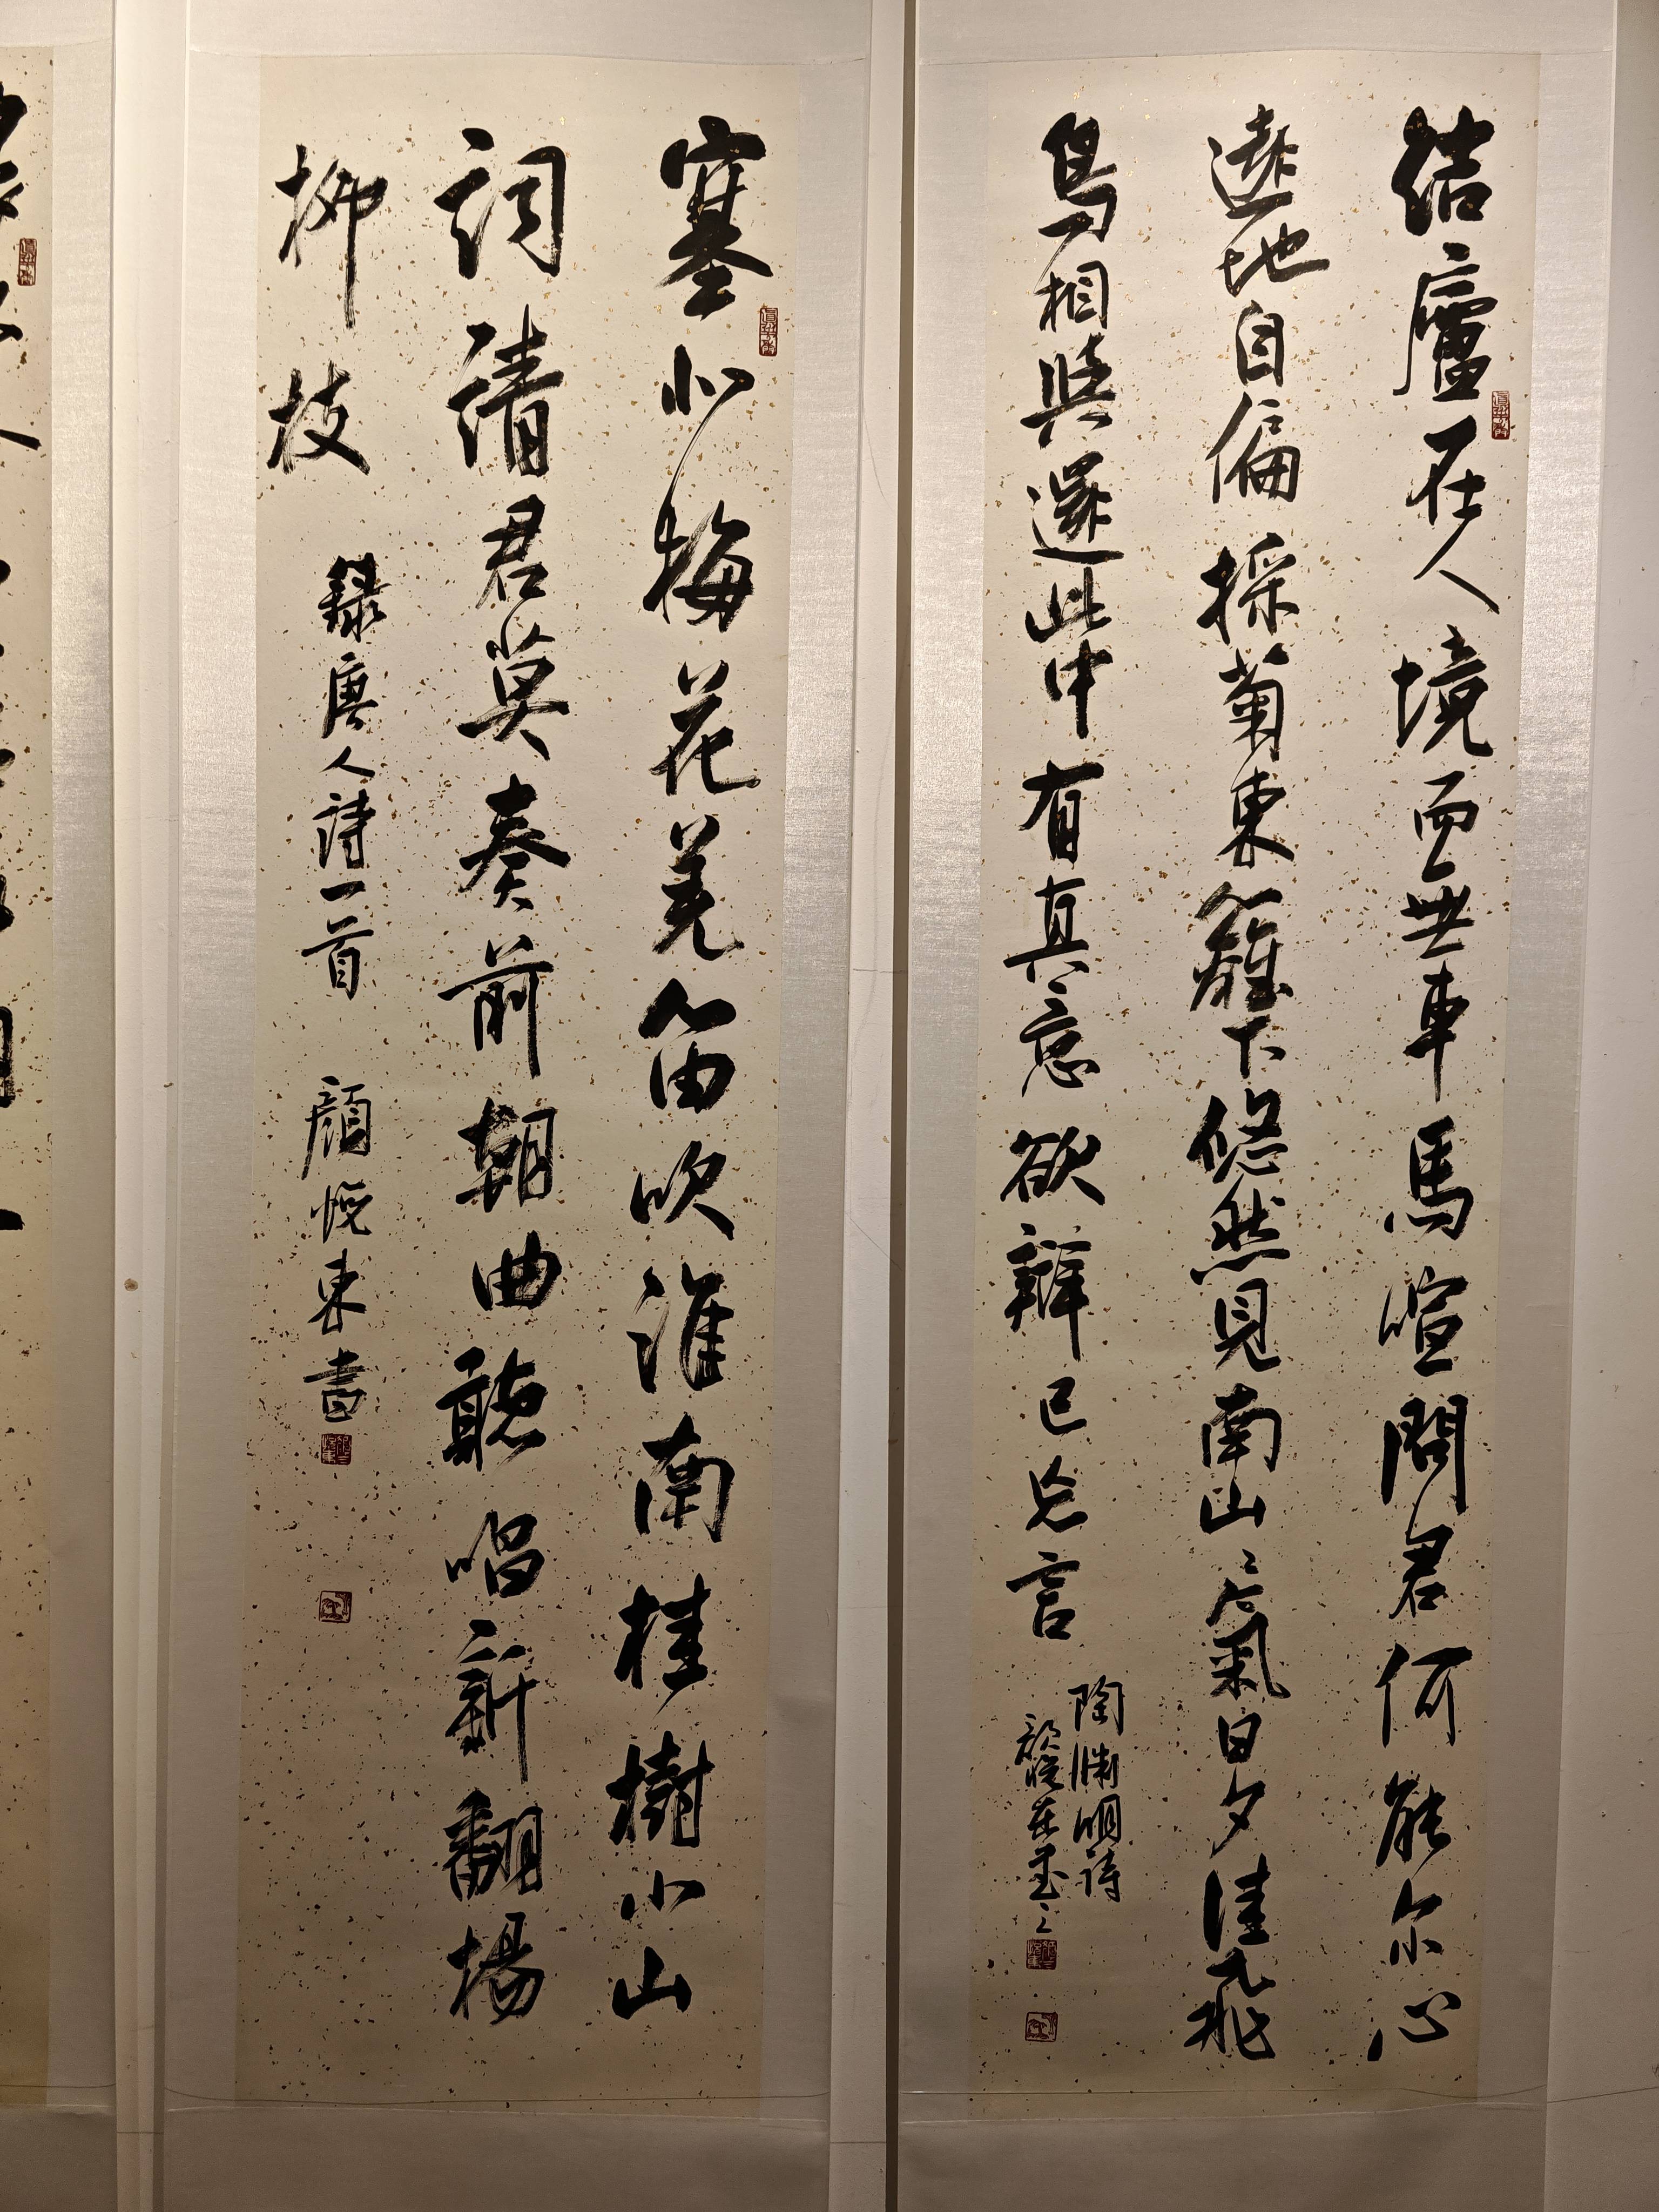 結廬在人境而無車馬喧問君何能尔心
遠地自偏採菊東籬下悠然見南山山氣日夕佳飛
鳥相與還此中有真意欲辯已忘言
陶淵明詩
顏悅東書之
塞北梅花羌笛吹淮南桂樹小山
詞請君莫奏前朝曲聽唱新翻楊
柳枝
録唐人詩一首 顏悅東書